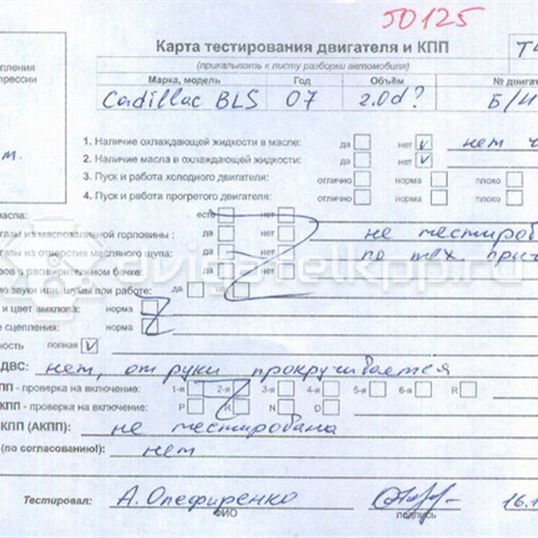 50125
Карта тестирования двигателя и КПП
(прикалывать к листу разборки автомобиля)
Марка, модель Год Объём № двигат
Cadillac BLS 07 2.0d? Б/Н
пления
прессии
м.
1. Наличие охлаждающей жидкости в масле: да нет V нет
2. Наличие масла в охлаждающей жидкости: да нет V
3. Пуск и работа холодного двигателя: отлично норма плохо
4. Пуск и работа прогретого двигателя: отлично норма плохо
масла: есть нет
газы из маслозаливной горловины : да нет не тестиров
газы из отверстия масляного щупа: да нет по тех прич
зов в расширительном бачке: да нет
ие звуки или шумы при работе: да нет
и цвет выхлопа: норма
е сцепления: норма
ность полная V
ДВС: нет, от руки прокручивается
ПП - проверка на включение: 1-я 2-я 3-я 4-я 5-я 6-я R
КПП - проверка на включение: P R N D
КПП (АКПП): не тестирована
(по согласованию!): нет
Тестировал: А. Олефиренко 16.1
ФИО подпись
avigatelkpp.ru